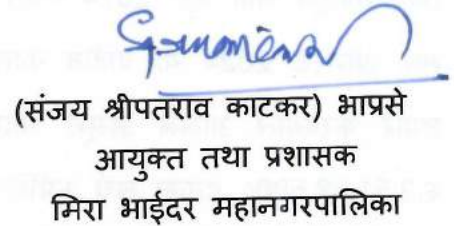 (संजय श्रीपतराव काटकर) भाप्रसे
आयुक्त तथा प्रशासक
मिरा भाईदर महानगरपालिका